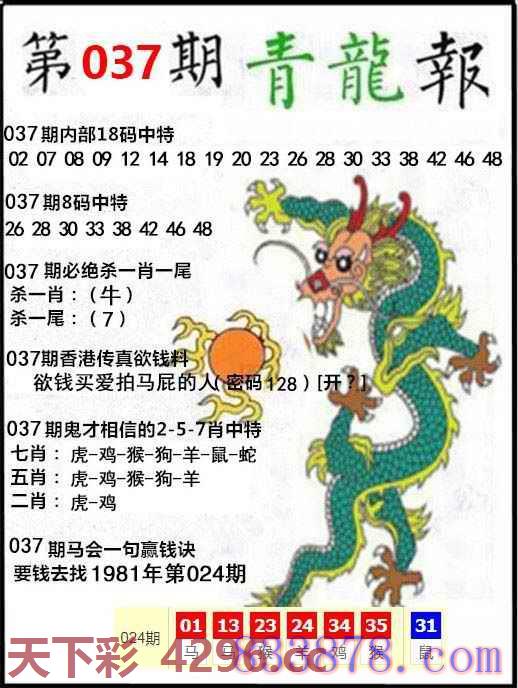 第037期青龍報
037期内部18码中特
02 07 08 09 12 14 18 19 20 23 26 28 30 33 38 42 46 48
037期8码中特
26 28 30 33 38 42 46 48
037期必绝杀一肖一尾
杀一肖：（牛）
杀一尾：（7）
037期香港传真欲钱料
欲钱买爱拍马屁的人（密码128）[开？]
037期鬼才相信的2-5-7肖中特
七肖：虎-鸡-猴-狗-羊-鼠-蛇
五肖：虎-鸡-猴-狗-羊
二肖：虎-鸡
037期马会一句赢钱诀
要钱去找1981年第024期
024期 01 13 23 24 34 35 31
马 马 猴 羊 鸡 猴 鼠
天下彩 4296.cc